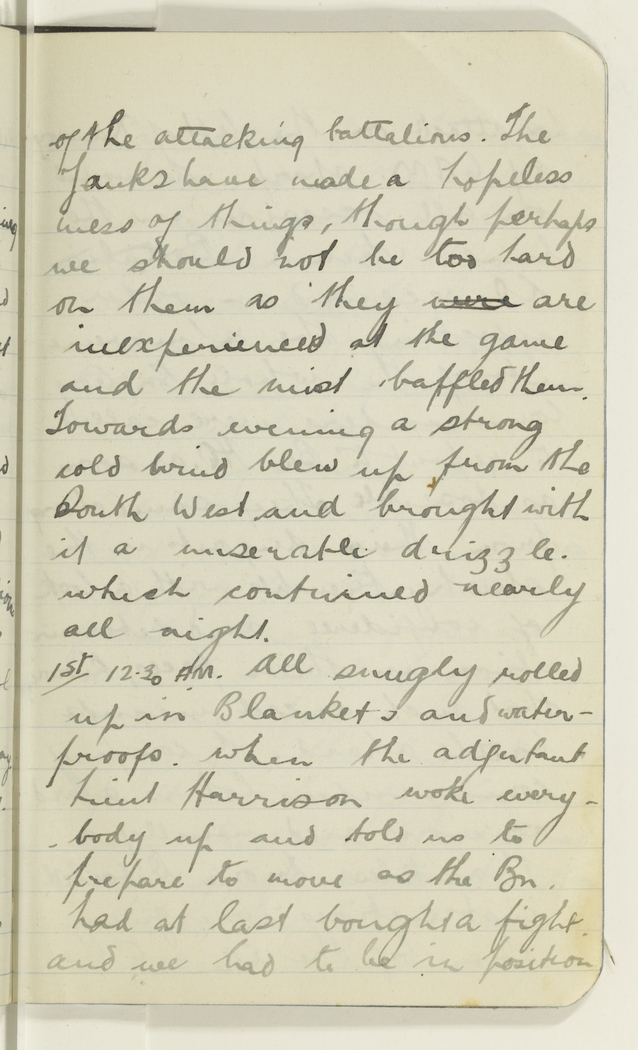 of the attacking battalions. The
Yanks have made a hopeless
mess of things, though perhaps
we should not be too hard
on them as they were are
inexperienced at the game
and the mist baffled them.
Towards evening a strong
cold wind blew up from the
South West and brought with
it a miserable drizzle.
which continued nearly
all night.
1st 12.30 AM. All snugly rolled
up in Blankets and water-
proofs. when the adjutant
Lieut Harrison woke every-
body up and told us to
prepare to move as the Bn.
had at last bought a fight.
and we had to be in position